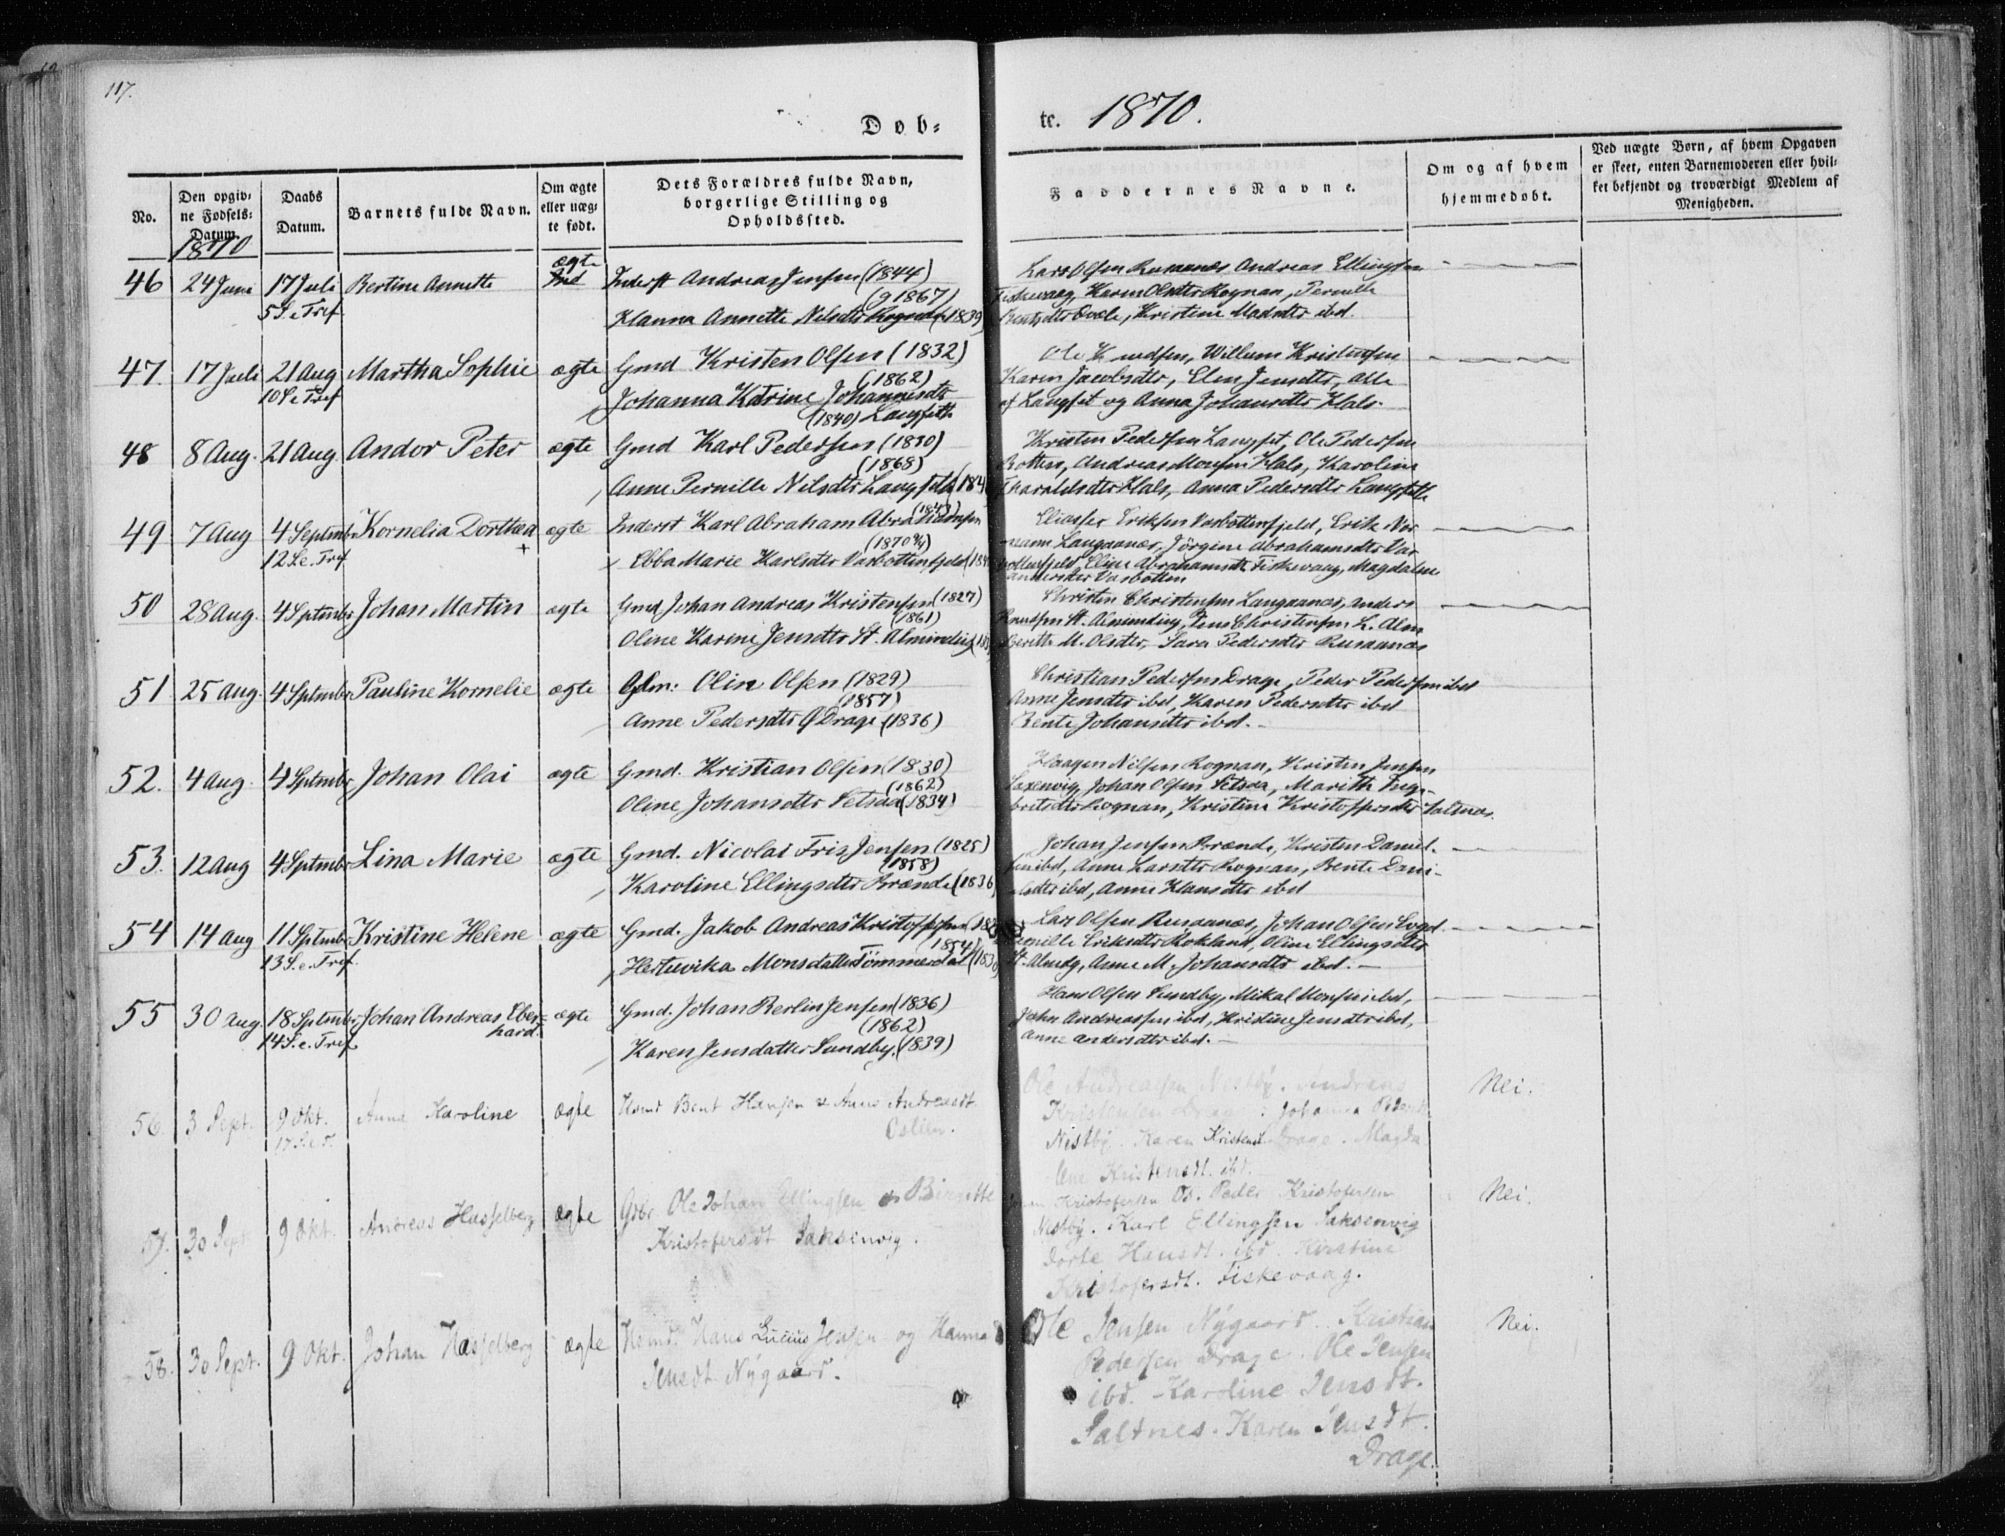 117.
Dob-
te. 1870.
No.
Den opgiv-
ne Fødsels-
Datum.
1870
Daabs
Datum.
Barnets fulde Navn.
Om ægte
eller uæg-
te født.
Dets Forældres fulde Navn,
borgerlige Stilling og
Opholdssted.
Faddernes Navne.
Om og af hvem
hjemmedøbt.
Ved uægte Børn, af hvem Opgaven
er skeet, enten Barnemoderen eller hvil-
ket bekjendt og troværdigt Medlem af
Menigheden.
46 24 Juni 17 Juli Bertine Annette ægte Inderst Andreas Jensen (1844)
5 S. e Tref (g 1867)
Hanna Annette Nilsdtr Rognan (1839)
Lars Olsen Rusaanes, Andreas Ellingsen
Fiskevaag, Karen Olsdtr Rognan, Pernille
Bentsdtr Evele, Kristine Madsdtr ibd.
47. 17 Juli 21 Aug Martha Sophie ægte Gmd Kristen Olsen (1832)
10 S. e Tref (1862)
Johanna Katrine Johannesdtr
(1840) Langseth
Ole Knudsen, Willum Kristensen
Karen Jacobsdtr, Elen Jensdtr, alle
af Langset og Anna Johansdtr Hals.
48 8 Aug. 21 Aug. Andor Peter ægte Gmd Karl Pedersen (1830)
(1868)
Anne Pernille Nilsdtr Langseth (184
Kristen Pedersen Langset, Ole Pedersen
Botten, Andreas Monsen Hals, Karoline
Tharaldsdtr Hals, Anna Pedersdtr Langseth
49 7 Aug 4 Septmbr Kornelia Dorthea ægte Inderst Karl Abraham Abrahamsen
12 S. e. Tref. + (1843)
(1870)
Ebba Marie Karlsdtr Vasbottenfjeld (184
Eliasser Eriksen Vasbottenfjeld, Erik Nor
mann Langaanes, Jörgine Abrahamsdtr Vas
bottenfjeld, Eline Abrahamsdtr Fiskevaag, Magdalene
Andersdtr Vasbotten
50 28 Aug. 4 Septmbr Johan Martin ægte Gmd Johan Andreas Kristensen (1827)
(1861)
Oline Karine Jensdtr St. Alminding (18
Christen Christensen Langaanes, Anders
Knudsen St. Alminding, Jens Christensen L. Alm
Berith M. Olsdtr, Sara Pedersdtr Rusaanes
51 25 Aug. 4 Septmbr Pauline Kornelie ægte Gdm: Olin Olsen (1829)
(1857)
Anne Pedersdtr Drage (1836)
Christian Pedersen Drage, Peder Pedersen ibd
Anne Jensdtr ibd, Karen Pedersdtr ibd
Bente Johansdtr ibd.
52. 4 Aug. 4 Septmbr Johan Olai ægte Gmd. Kristian Olsen (1830)
(1862)
Oline Johansdtr Setsaa (1834)
Haagen Nilsen Rognan, Kristen Jensen
Saxenvig, Johan Olsen Setsaa, Marith Inge-
bretsdtr Rognan, Kristine Kristoffersdtr Saltnes.
53. 12 Aug 4 Septmbr Lina Marie ægte Gmd. Nicolai Fris Jensen (1825)
(1858)
Karoline Ellingsdtr Brænde (1836
Johan Jensen Brænde, Kristen Daniel-
sen ibd, Anne Larsdtr Rognan, Bente Dani-
elsdtr ibd, Anne Hansdtr ibd
54 14 Aug 11 Septmbr Kristine Helene ægte Gmd. Jakob Andreas Kristoffersen (182
13 S. e. Tref. 1854
Hertevika Monsdatter Tømmerdal (183
Lars Olsen Rusaanes, Johan Olsen Evgd.
Pernille Eriksdtr Rokland, Oline Ellingsdtr
St. Almdg, Anne M. Johansdtr ibd.
55 30 Aug. 18 Septmbr Johan Andreas Eber- ægte Gmd. Johan Berlin Jensen (1836)
14 S. e. Tref. hard. (1862)
Karen Jensdatter Sundby. (1839)
Hans Olsen Sundby, Mikal Monsen ibd,
John Andreassen ibd, Kristine Jensdtr ibd,
Anne Andersdtr ibd.
56. 3 Sept. 9 Okt. Anna Karoline ægte Husmd Bent Hansen & Anne Andreasdt.
17 S. e. T.
Ole Andreassen Nestby. Andreas
Kristensen Johanna Peders
Nestby. Karen Kristensd Drage. Magda
lene Kristensdt. ibd.
Nei.
57. 30 Sept. 9 Okt. Andreas Hasselberg ægte Gdbr Ole Johan Ellingsen & Birgitte
Kristofersdt Saksenvig.
Kristofersen Peder Kristofersen
Nestby. Karl Ellingsen Saksenvig
Dorte Hansdt. ibd. Kirstine
Kristofersdt. Fiskevaag.
Nei.
58. 30 Sept. 9 Okt. Johan Hasselberg ægte Husmd. Hans Lucius Jensen og Hanna
Jensdt Nygaard.
Ole Jensen Nygaard. Kristian
Pedersen Drage. Ole Jensen
ibd. Karoline Jensdt.
Saltnes. Karen Jensdt.
Drage.
Nei.